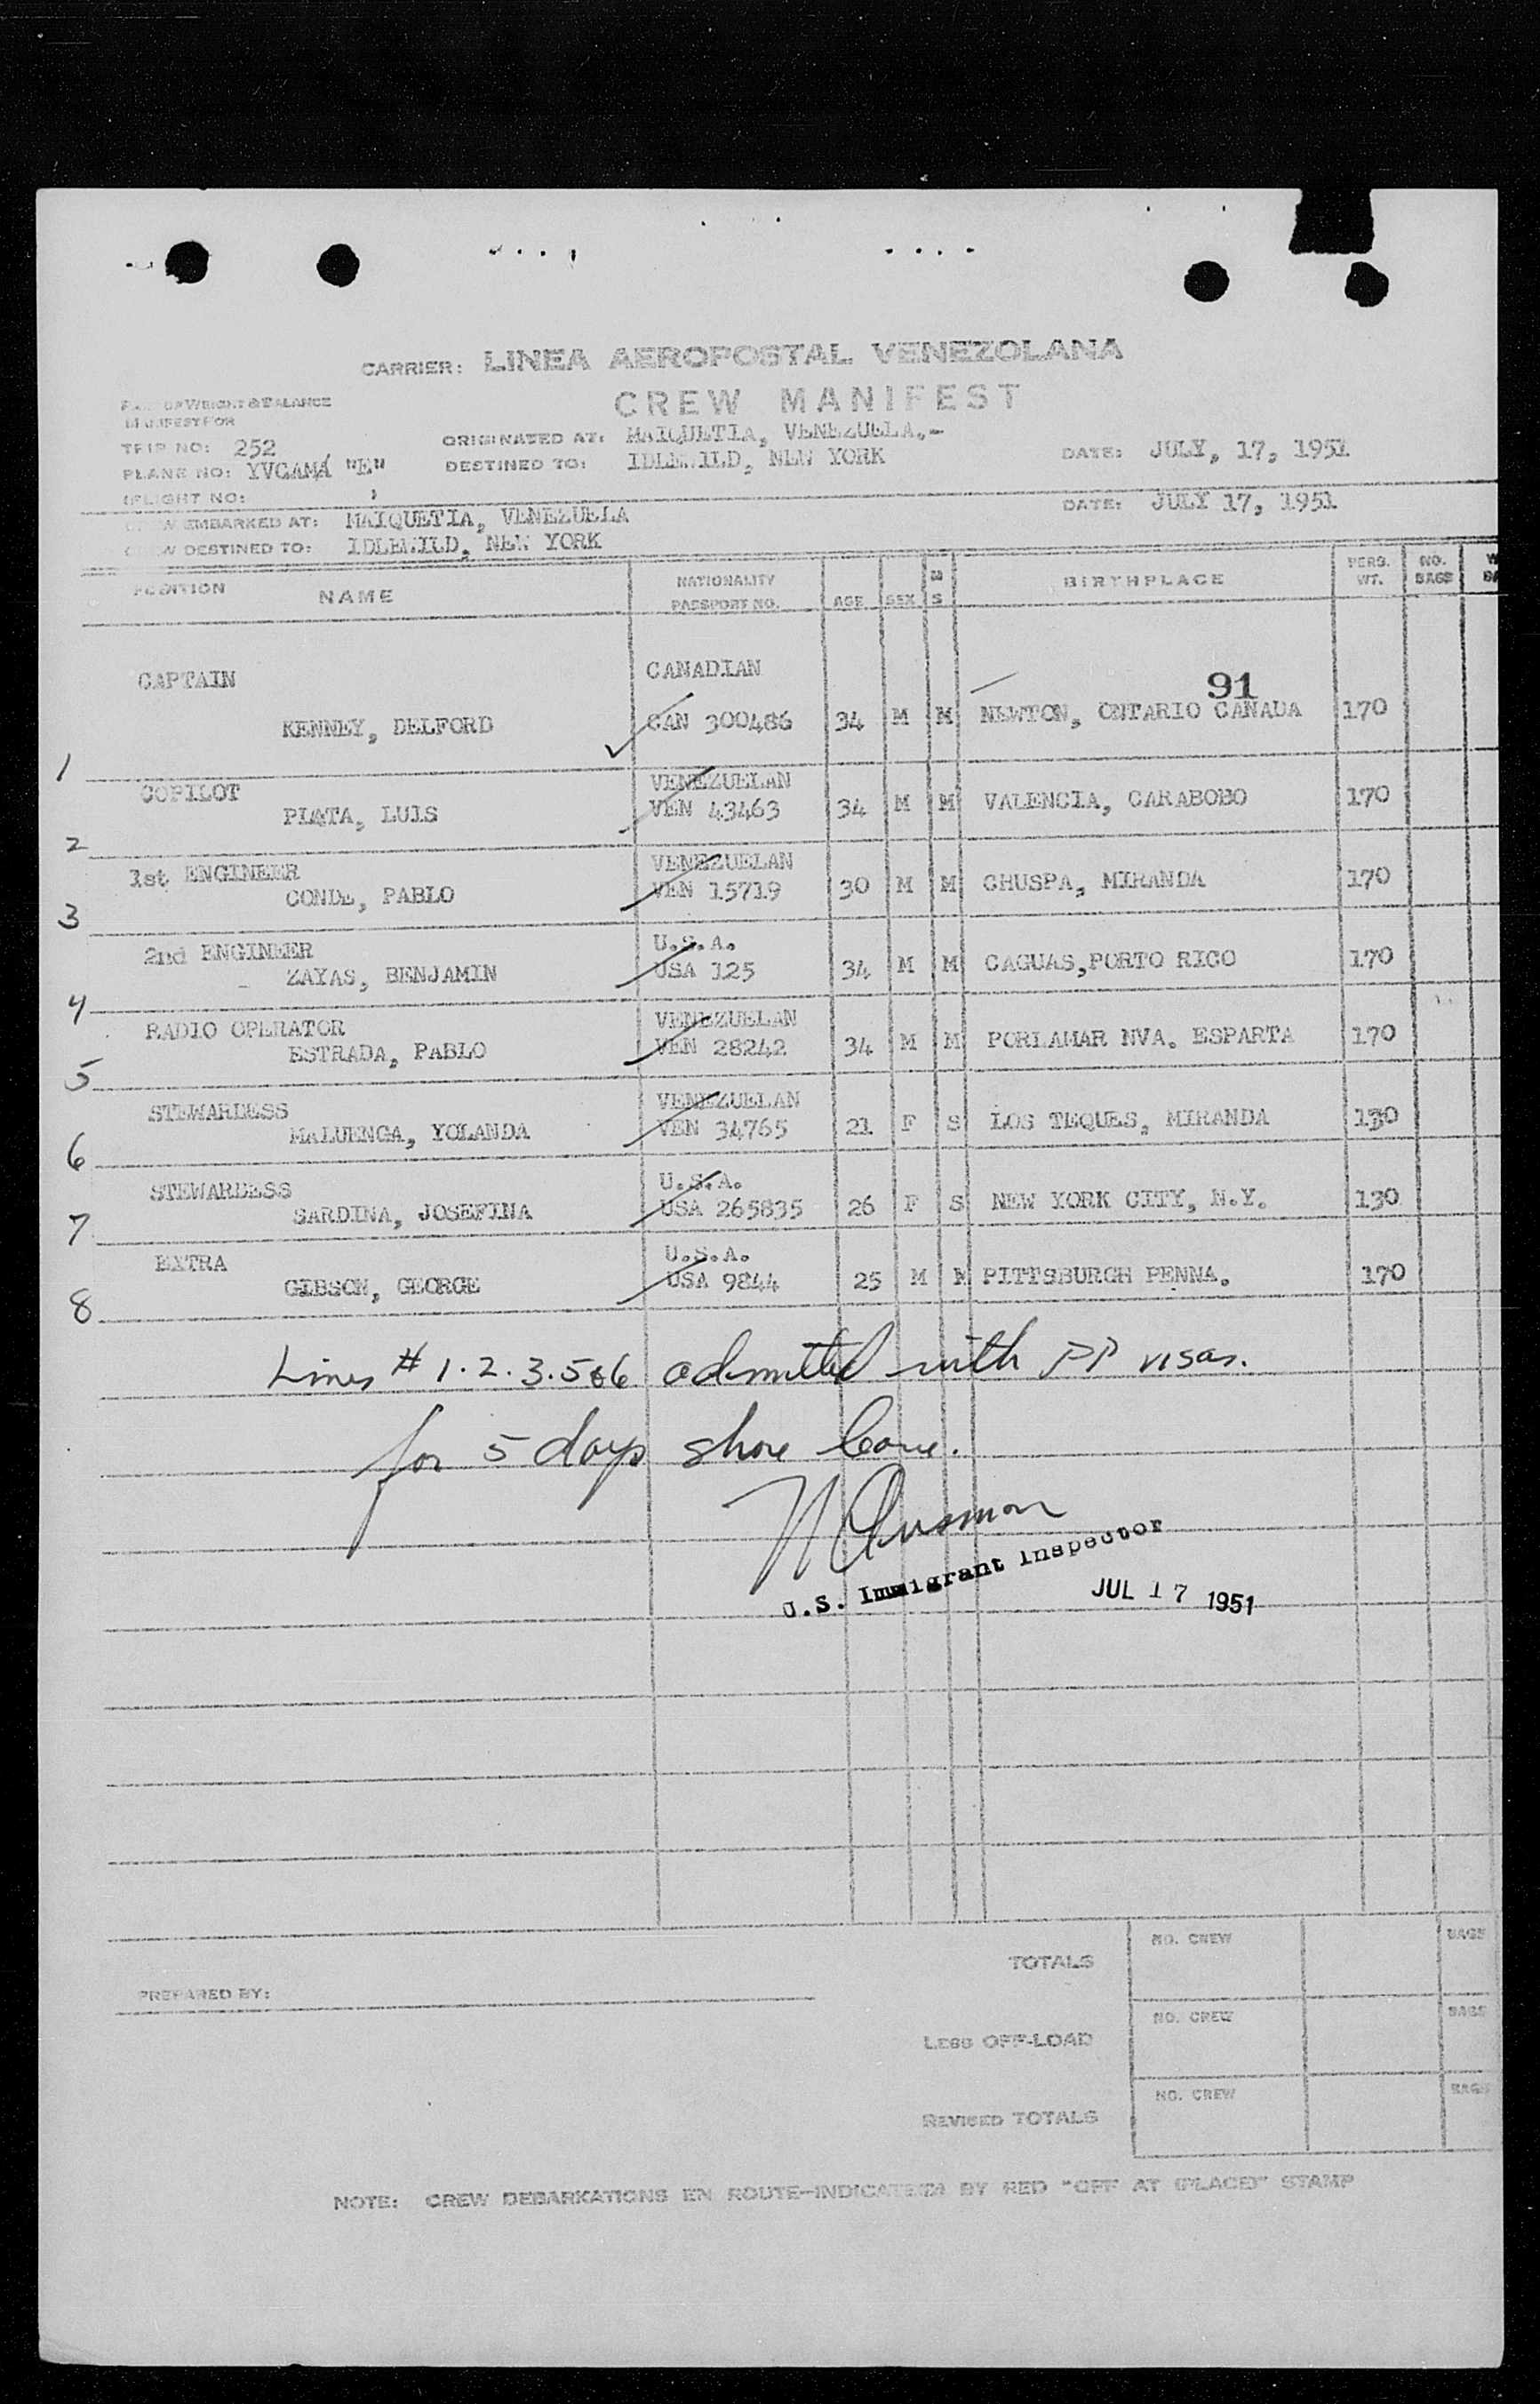 CARRIER: LINEA AEROPOSTAL VENEZOLANA
CREW MANIFEST
WEIGHT & BALANCE
MANIFEST FOR
TRIP NO: 252
ORIGINATED AT: MAIQUETIA, VENEZUELA.-
PLANE NO: YVCAMA "E"
DESTINED TO: IDLEWILD, NEW YORK
DATE: JULY, 17, 1951
FLIGHT NO:
EMBARKED AT: MAIQUETIA, VENEZUELA
DATE: JULY 17, 1951
DESTINED TO: IDLEWILD, NEW YORK
POSITION NAME NATIONALITY PASSPORT NO. AGE SEX M S BIRTHPLACE PERS. WT. NO. BAGS
CAPTAIN CANADIAN 91
KENNEY, DELFORD CAN 300486 34 M M NEWTON, ONTARIO CANADA 170
1
COPILOT VENEZUELAN
PLATA, LUIS VEN 43463 34 M M VALENCIA, CARABOBO 170
2
1st ENGINEER VENEZUELAN
CONDE, PABLO VEN 15719 30 M M CHUSPA, MIRANDA 170
3
2nd ENGINEER U.S.A.
ZAYAS, BENJAMIN USA 125 34 M M CAGUAS,PORTO RICO 170
4
RADIO OPERATOR VENEZUELAN
ESTRADA, PABLO VEN 28242 34 M M PORLAMAR NVA. ESPARTA 170
5
STEWARDESS VENEZUELAN
MALUENGA, YOLANDA VEN 34765 21 F S LOS TEQUES, MIRANDA 130
6
STEWARDESS U.S.A.
SARDINA, JOSEFINA USA 265835 26 F S NEW YORK CITY, N.Y. 130
7
EXTRA U.S.A.
GIBSON, GEORGE USA 9844 25 M M PITTSBURGH PENNA. 170
8
Lines # 1.2.3.5&6 admitted with PP visas.
for 5 days shore leave.
U.S. Immigrant Inspector
JUL 17 1951
TOTALS NO. CREW BAGS
PREPARED BY:
LESS OFF-LOAD NO. CREW BAGS
REVISED TOTALS NO. CREW BAGS
NOTE: CREW DEBARKATIONS EN ROUTE-INDICATED BY RED "OFF AT (PLACE)" STAMP